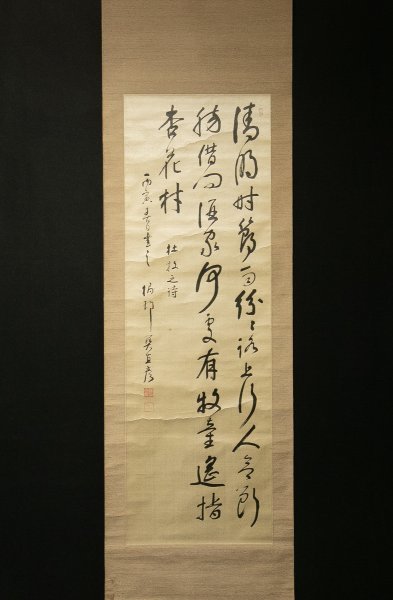 清明時節雨紛〻路上行人欲斷
魂借問酒家何處有牧童遙指
杏花村
杜牧之詩
丙寅春書之